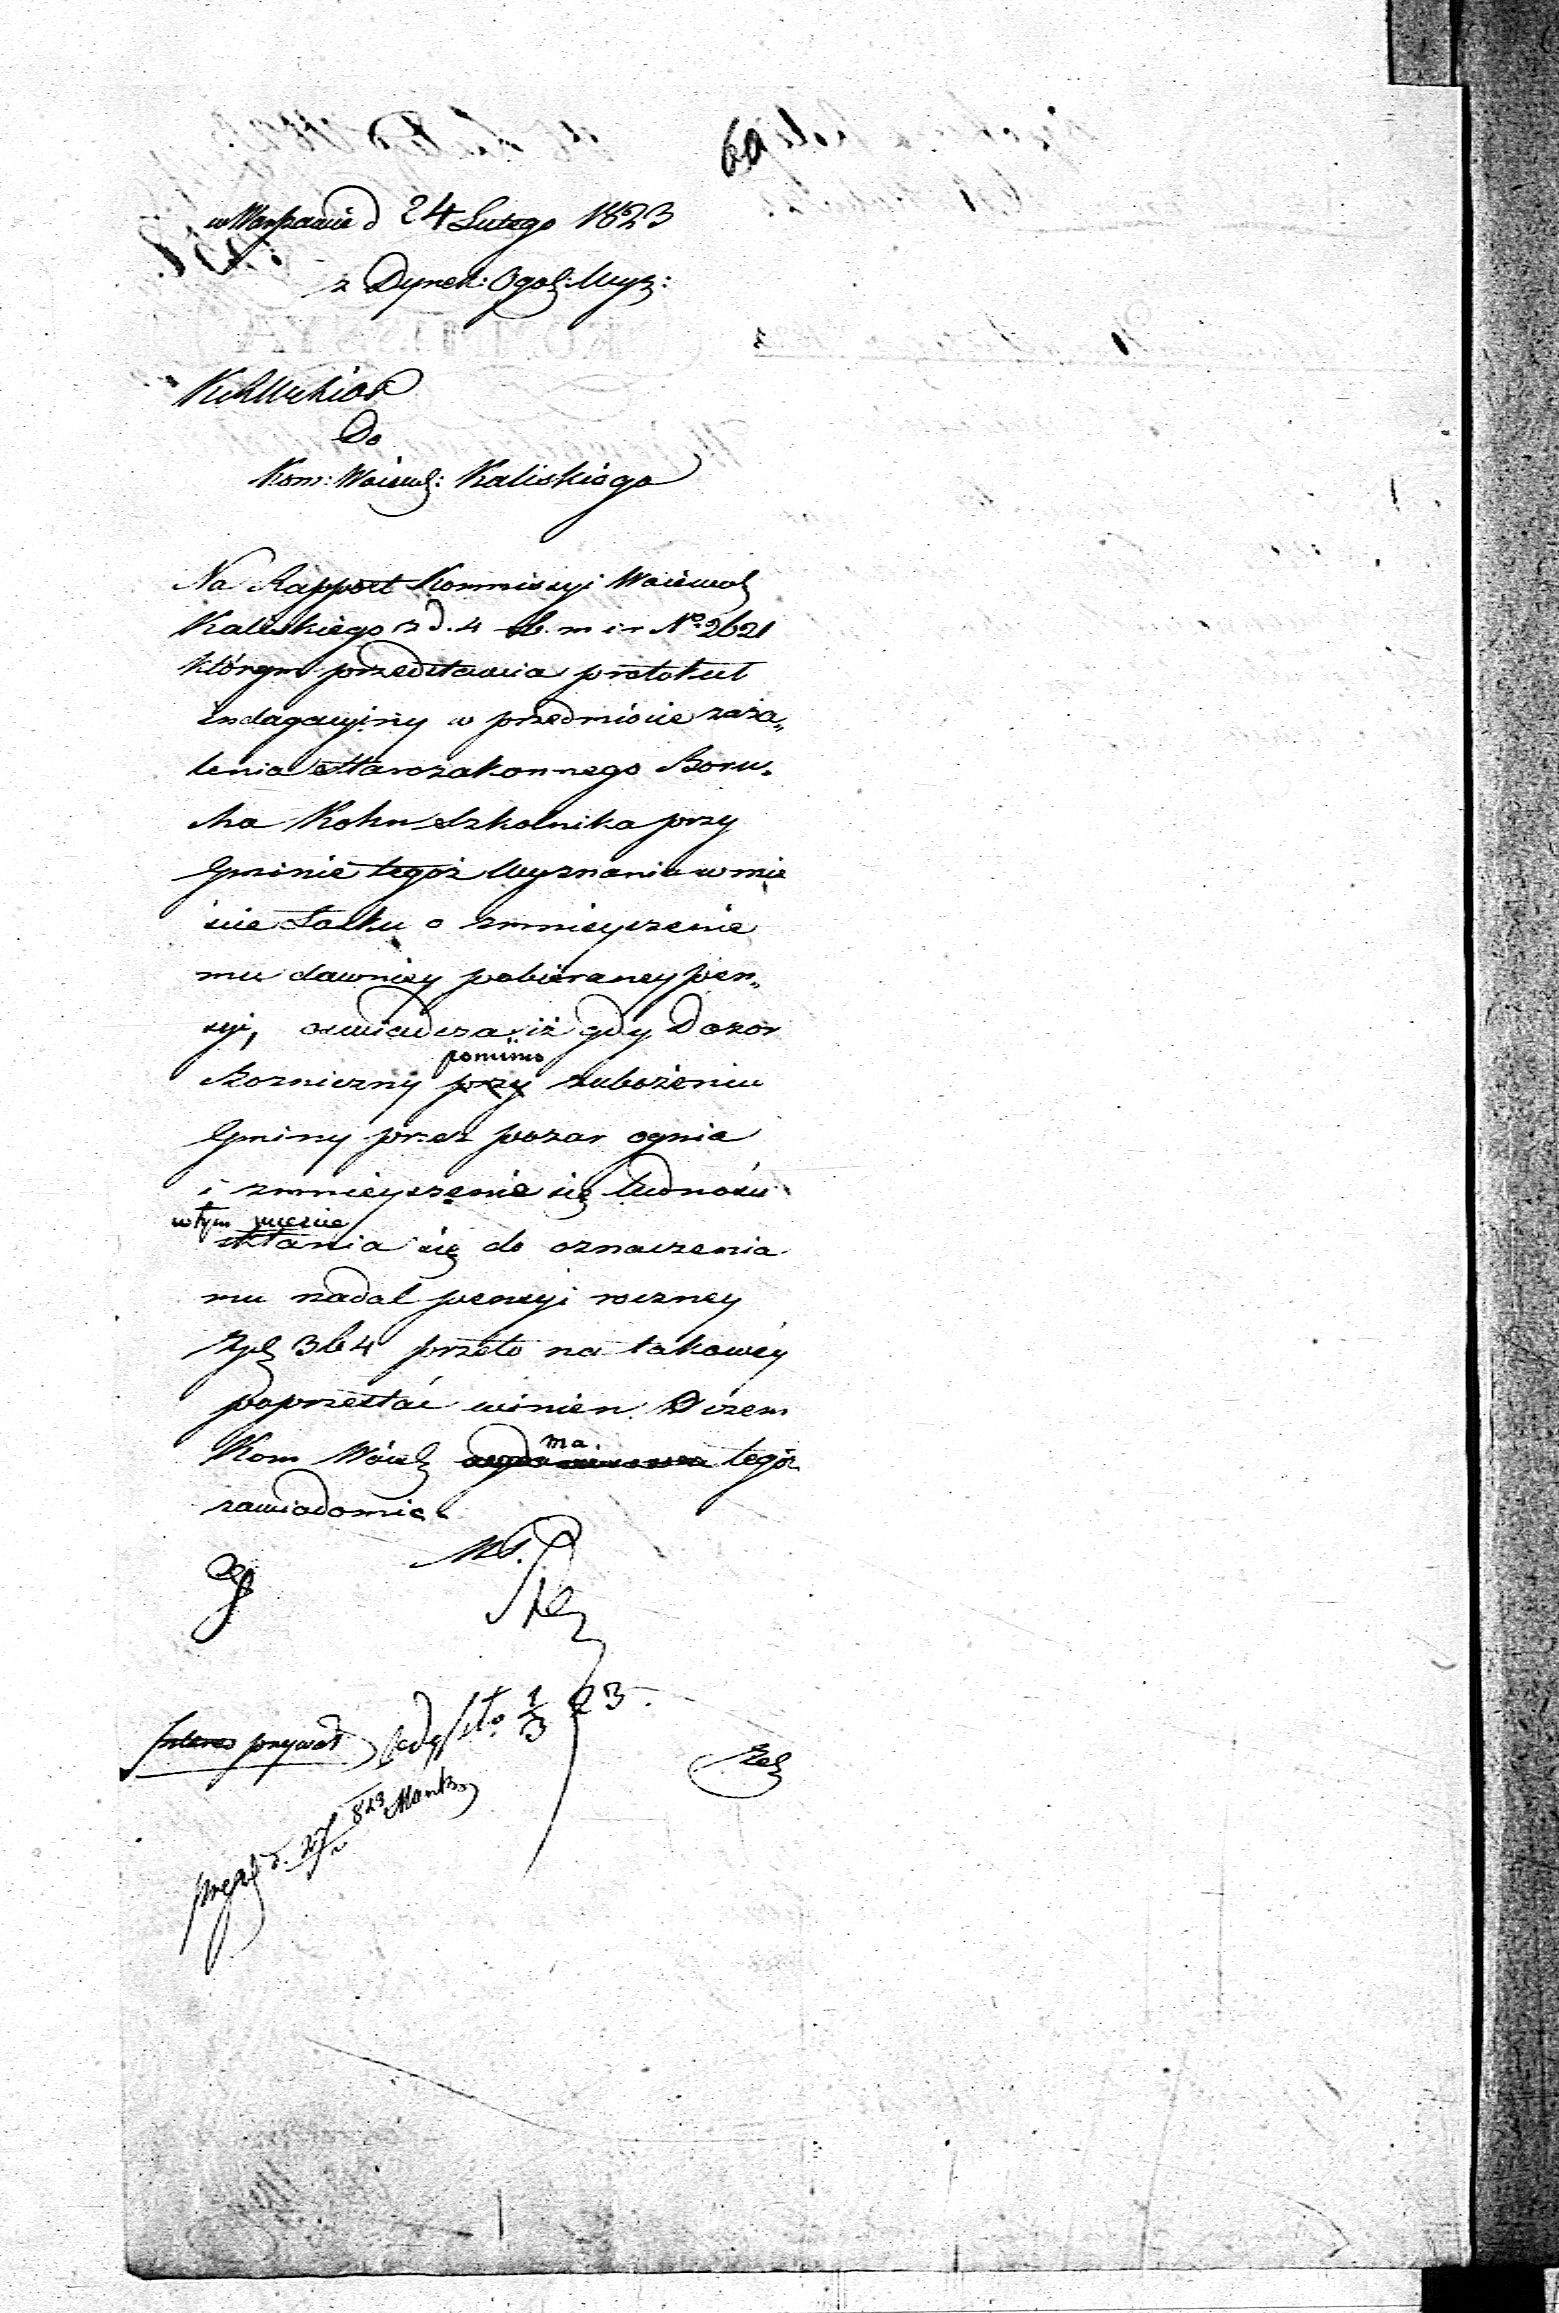 69
w Warszawie d 24 Lutego 1823
z Dyrek: Ogol: Wyz:
KRWRiOP
Do
Kom: Woiewod: Kaliskiego
Na Rapport Kommissyi Woiewod
Kaliskiego z d. 4 b. m i r No 2621
którym przedstawia protokuł
indagacyjny w przedmiocie zaża„
lenia Starozakonnego Boru„
cha Kohn Szkolnika przy
Gminie tegoż Wyznania w mie
scie o zmnieyszenie
mu dawniey pobieraney pen„
syi, oswiadcza iż gdy Dozor
Bozniczny przy pomimo zubożeniu
Gminy przez pozar ognia
i zmnieyszenie się ludności
w tym miescie
skłania się do oznaczenia
mu nadal pensyi roczney
Zpl 364 przeto na takowéy
poprzestać winien. O czem
Kom Woiewod ma tegoż
zawiadomić
Interes prywat
1/3 23.
d. 27/2 823